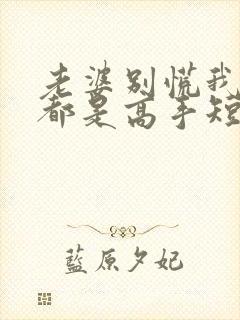 老婆别慌我
都是高手短
藍原夕妃